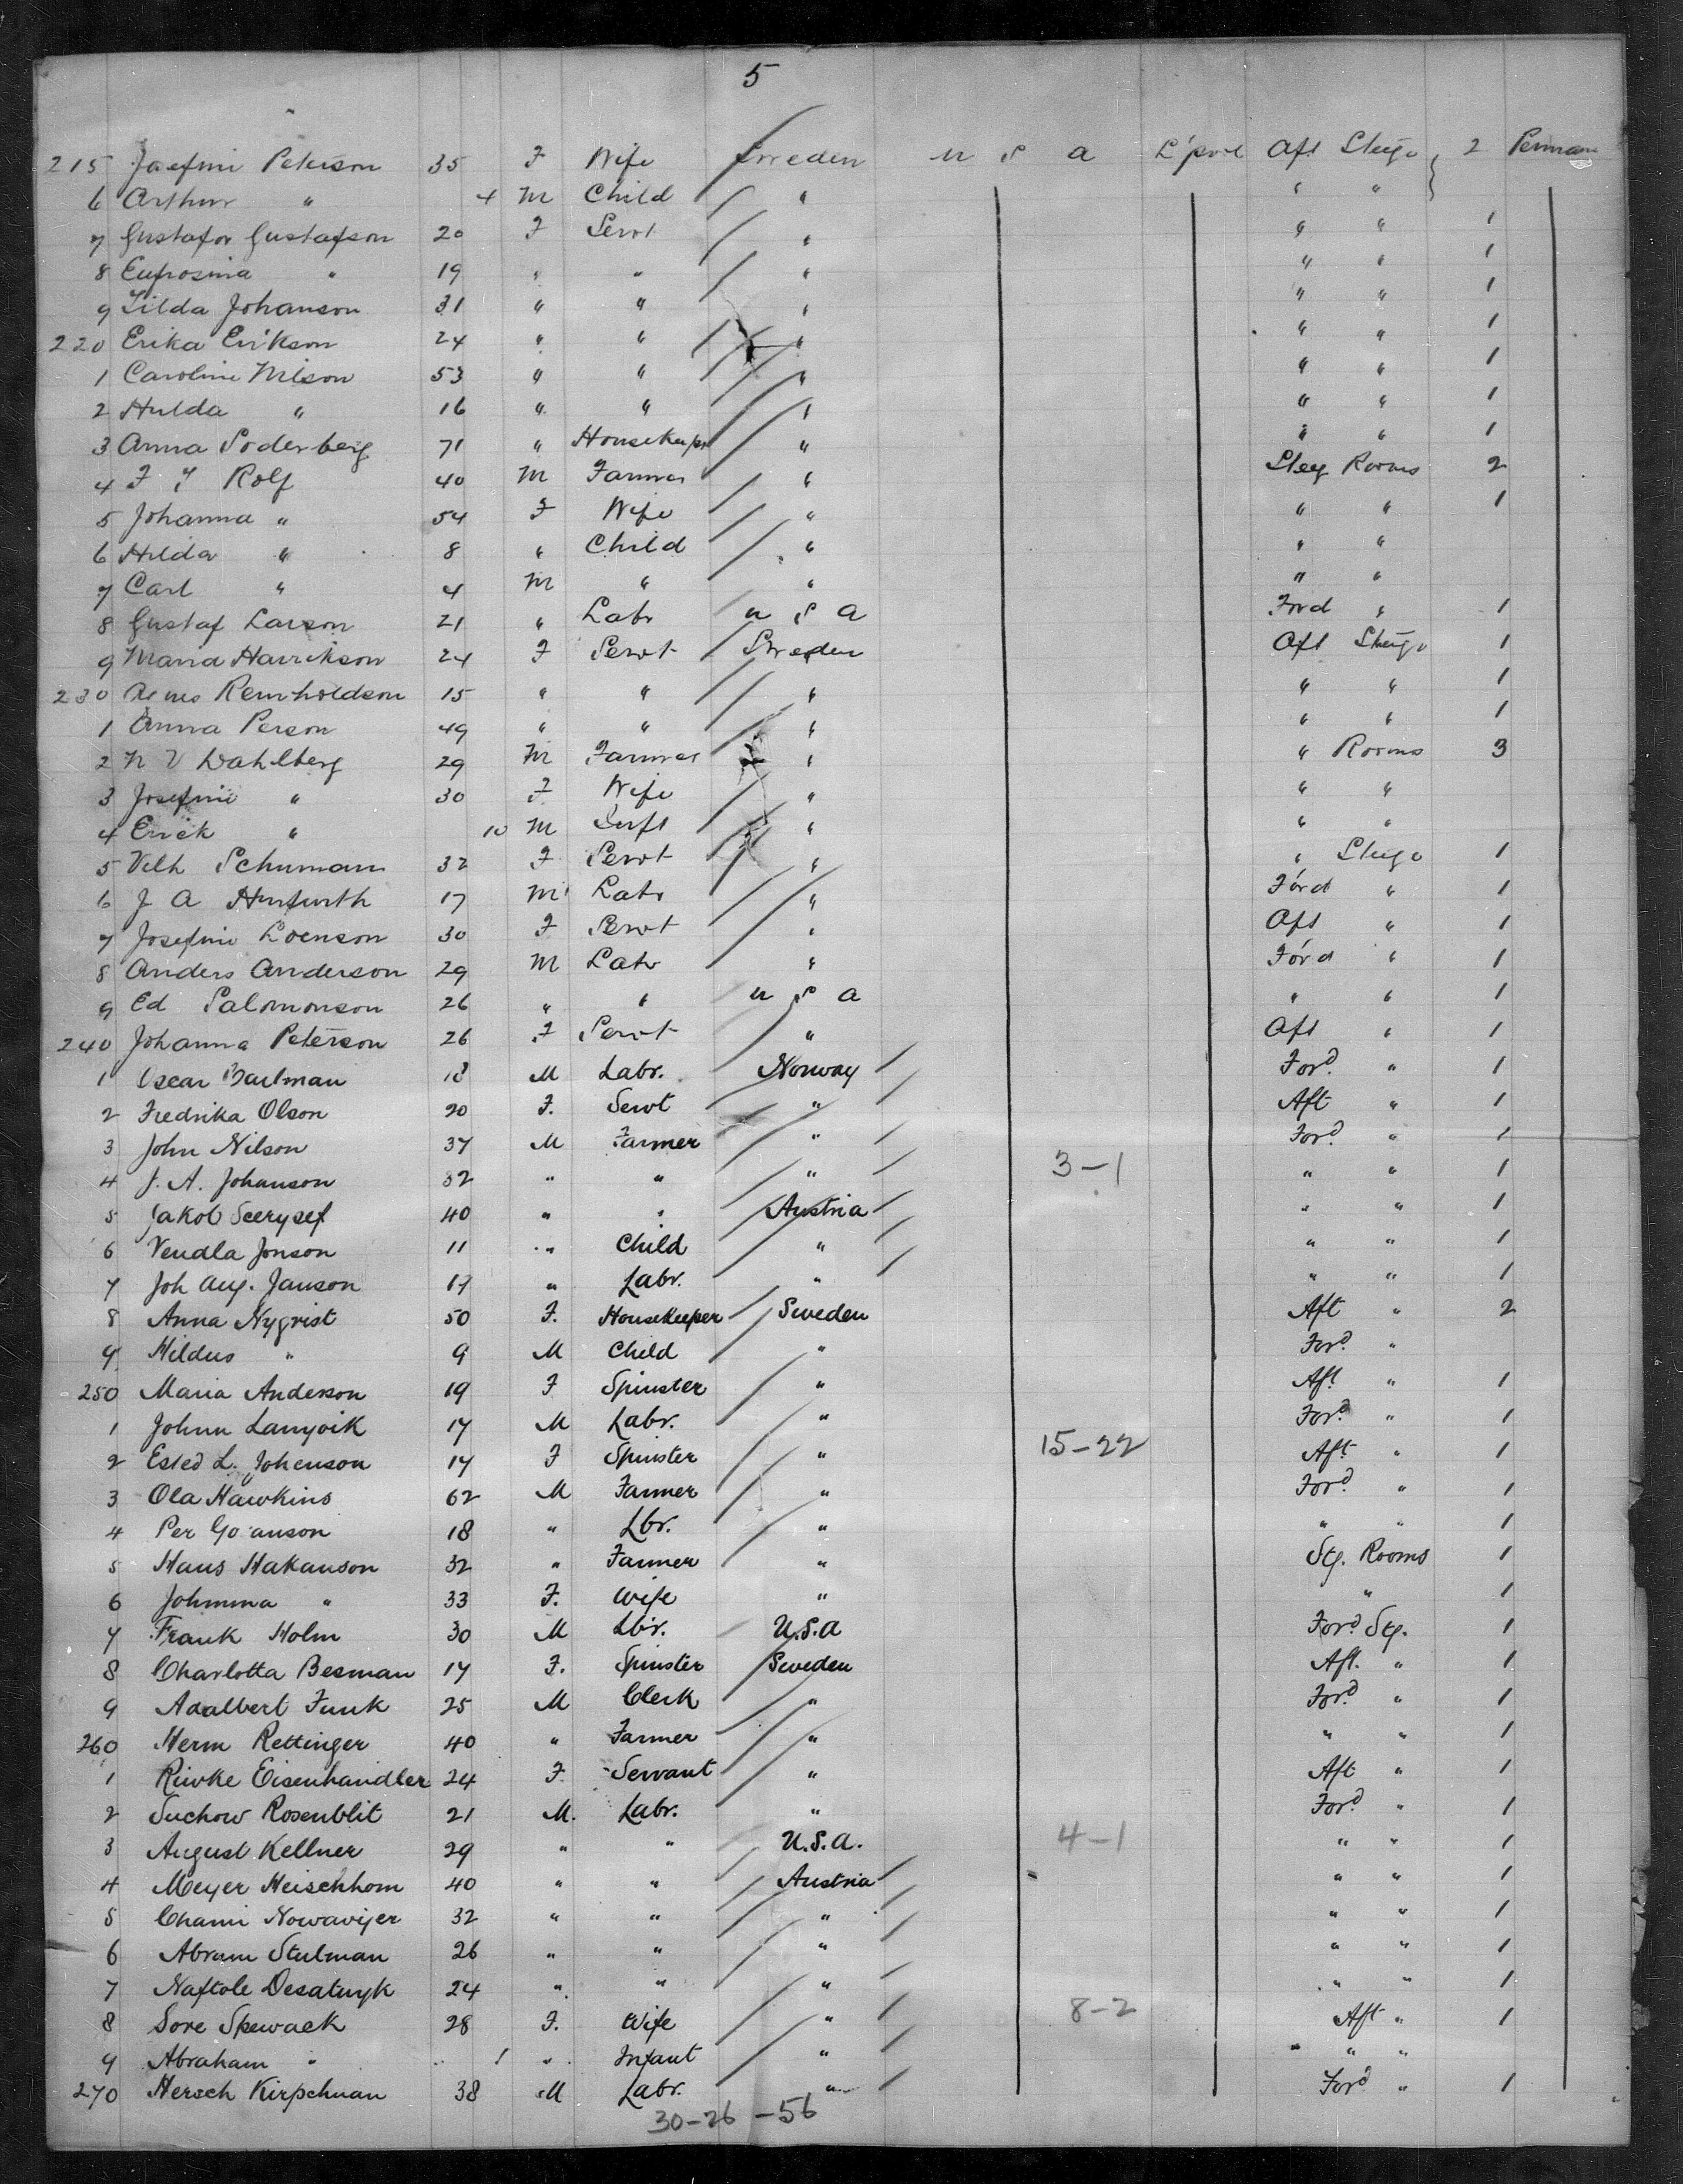 5
215 Josefini Peterson 35 F Wife Sweden U S A L'pool Aft Steige } 2 Perman
6 Arthur " 4 M Child " " "
7 Gustafor Gustafson 20 F Servt " " " 1
8 Eufrosina " 19 " " " " " 1
9 Tilda Johanson 31 " " " " " 1
220 Erika Erikson 24 " " " " " 1
1 Caroline Nilson 53 " " " " " 1
2 Hulda " 16 " " " " " 1
3 Anna Soderberg 71 " Housekeepr " " " 1
4 F J Rolf 40 M Farmer " Steg Rooms 2
5 Johanna " 54 F Wife " " " 1
6 Hilda " 8 " Child " " "
7 Carl " 4 M " " " "
8 Gustaf Larson 21 " Labr U S A Ford " 1
9 Maria Harrikson 24 F Servt Sweden Aft Steige 1
230 Agnes Remholdson 15 " " " " " 1
1 Anna Person 49 " " " " " 1
2 N V Wahlberg 29 M Farmer " " Rooms 3
3 Josefini " 30 F Wife " " "
4 Erick " 10 M Inft " " "
5 Vilh Schuman 32 F Servt " " Steige 1
6 J A Hurfurth 17 M Labr " Ford " 1
7 Josefini Loenson 30 F Servt " Aft " 1
8 Anders Anderson 29 M Labr " Ford " 1
9 Ed Salomonson 26 " " U S A " " 1
240 Johanna Peterson 26 F Servt " Aft " 1
1 Oscar Bartman 18 M Labr. Norway Ford. " 1
2 Fredrika Olson 20 F. Servt " Aft " 1
3 John Nilson 37 M Farmer " Ford. " 1
4 J. A. Johanson 32 " " " 3-1 " " 1
5 Jakob Seerysef 40 " " Austria " " 1
6 Vendla Jonson 11 " Child " " " 1
7 Joh Aug. Janson 17 " Labr. " " " 1
8 Anna Nyqrist 50 F. Housekeeper Sweden Aft " 2
9 Hildus " 9 M Child " Ford. "
250 Maria Anderson 19 F Spinster " Aft " 1
1 Johnn Lanyoik 17 M Labr. " Ford. " 1
2 Ested L. Johenson 17 F Spinster " 15-22 Aft " 1
3 Ola Hawkins 62 M Farmer " Ford. " 1
4 Per Go anson 18 " Lbr. " " " 1
5 Hans Hakanson 32 " Farmer " Stg. Rooms 1
6 Johnmna " 33 F. Wife " " 1
7 Frank Holm 30 M Lbr. U.S.A Ford. Stg. 1
8 Charlotta Besman 17 F. Spinster Sweden Aft. " 1
9 Adalbert Funk 25 M Clerk " Ford. " 1
260 Herm Rettinger 40 " Farmer " " " 1
1 Riwke Eisenhandler 24 F. Servant " Aft " 1
2 Suchow Rosenblit 21 M. Labr. " Ford. " 1
3 August Kellner 29 " " U.S.A. 4-1 " " 1
4 Meyer Heischhom 40 " " Austria " " 1
5 Chami Nowavijer 32 " " " " " 1
6 Abram Stulman 26 " " " " " 1
7 Naftole Desatnyk 24 " " " " " 1
8 Sore Spewack 28 F. Wife " 8-2 Aft " 1
9 Abraham " 1 " Infant " " "
270 Hersch Kirpchnan 38 M Labr. " Ford " 1
30-26-56